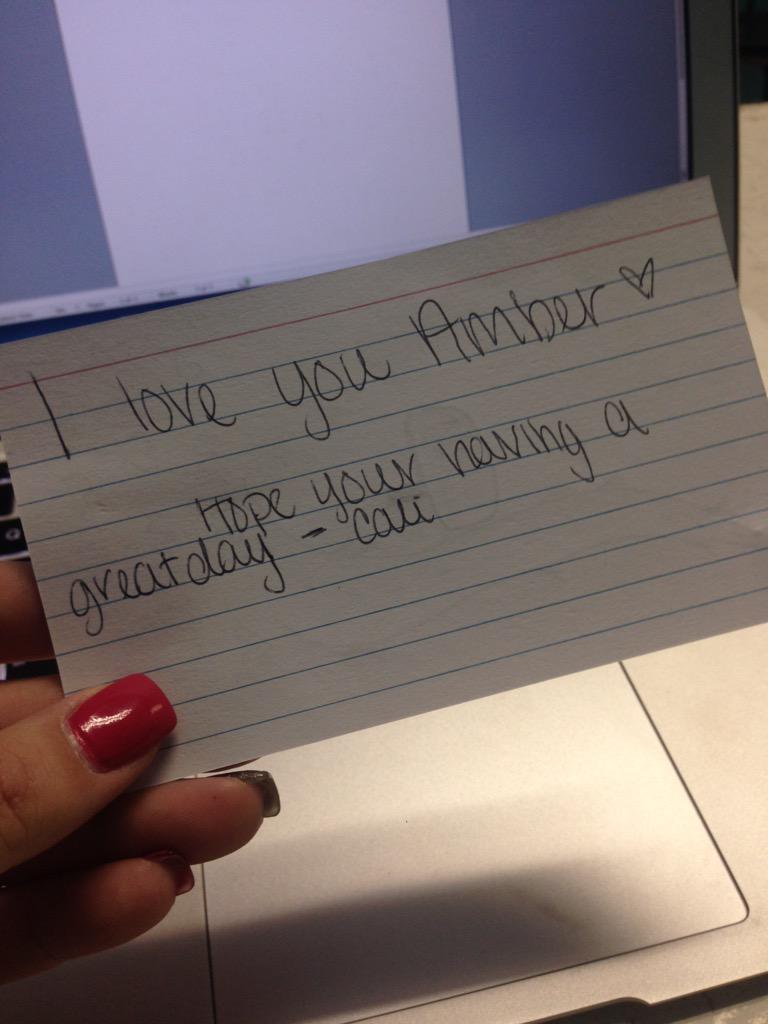 I love you Amber ♡
Hope your having a
great day - cali